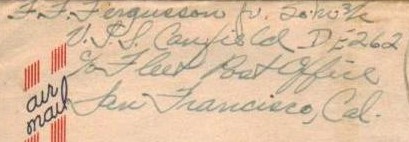 F. F. Fergusson Jr. SoM3/c
U.S.S. Canfield DE262
c/o Fleet Post Office
San Francisco, Cal.
air
mail